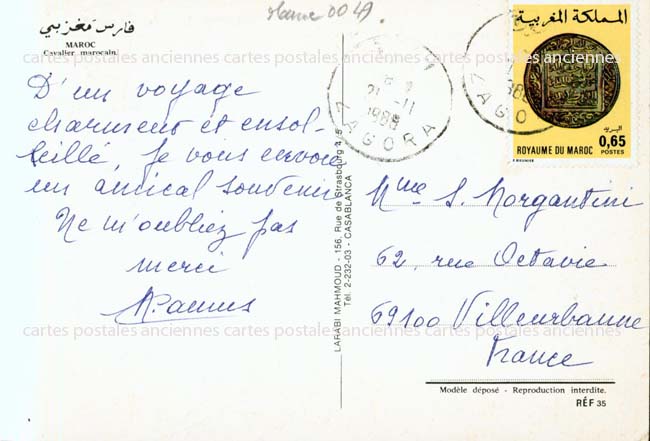 Maroc 00 49
فارس مخزني
MAROC
Cavalier marocain.
D'un voyage
charment et ensol-
leillé, je vous envoie
un amical souvenir
Ne m'oubliez pas
merci
LARABI MAHMOUD - 156, Rue de Strasbourg
Tél. 2-232-03 - CASABLANCA
21 -11
1988
ZAGORA
ZAGO
المملكة المغربية
البريد
0,65
POSTES
ROYAUME DU MAROC
Mme S. Morgantini
62, rue Octavie
69100 Villeurbanne
France
Modèle déposé - Reproduction interdite.
RÉF 35
cartes postales anciennes cartes postales anciennes cartes postales anciennes
cartes postales anciennes cartes postales anciennes cartes postales anciennes